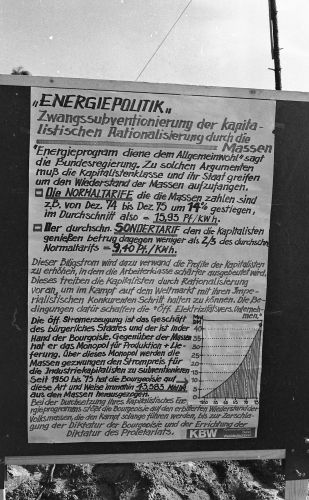 "ENERGIEPOLITIK"
Zwangssubventionierung der kapita-
listischen Rationalisierung durch die
Massen
"Energieprogram diene dem Allgemeinwohl" sagt
die Bundesregierung. Zu solchen Argumenten
muß die Kapitalistenklasse und ihr Staat greifen
um den Wiederstand der Massen aufzufangen.
Die NORMALTARIFE die die Massen zahlen sind
z.B. von Dez. 74 bis Dez 75 um 14% gestiegen,
im Durchschnitt also = 15,95 Pf/KWh.
Der durchschn. SONDERTARIF den die Kapitalisten
genießen betrug dagegen weniger als 2/3 des durchschn.
Normaltarifs = 9,40 Pf/KWh.
Dieser Billigstrom wird dazu verwand die Profite der Kapitalisten
zu erhöhen, in dem die Arbeiterklasse schärfer ausgebeutet wird.
Dieses treiben die Kapitalisten durch Rationalisierung
voran, um im Kampf auf dem Weltmarkt mit ihren Impe-
rialistischen Konkurenten Schritt halten zu können. Die Be-
dingungen dafür schaffen die "Öff. Elektrizitätsvers. Unterneh-
men"
Die Öff. Stromerzeugung ist das Geschäft
des bürgerlichen Staates und der ist in der
Hand der Bourgoisie. Gegenüber der Massen
hat er das Monopol für Produktion + Lie-
ferung. Über dieses Monopol werden die
Massen gezwungen den Strompreis für
die Industriekapitalisten zu subventionieren
Seit 1950 bis 75 hat die Bourgeoisie auf
diese Art und Weise immerhin 43,583 Mrd DM
aus den Massen herausgezogen.
Bei der Durchsetzung ihres Kapitalistischen Ene-
rgieprogramms stößt die Bourgeoisie auf den erbitterten Wiederstand der
Volksmassen, die den Kampf solange führen werden, bis zur Zerschla-
gung der Diktatur der Bourgeoisie und der Errichtung der
Diktatur des Proletariats.
KBW